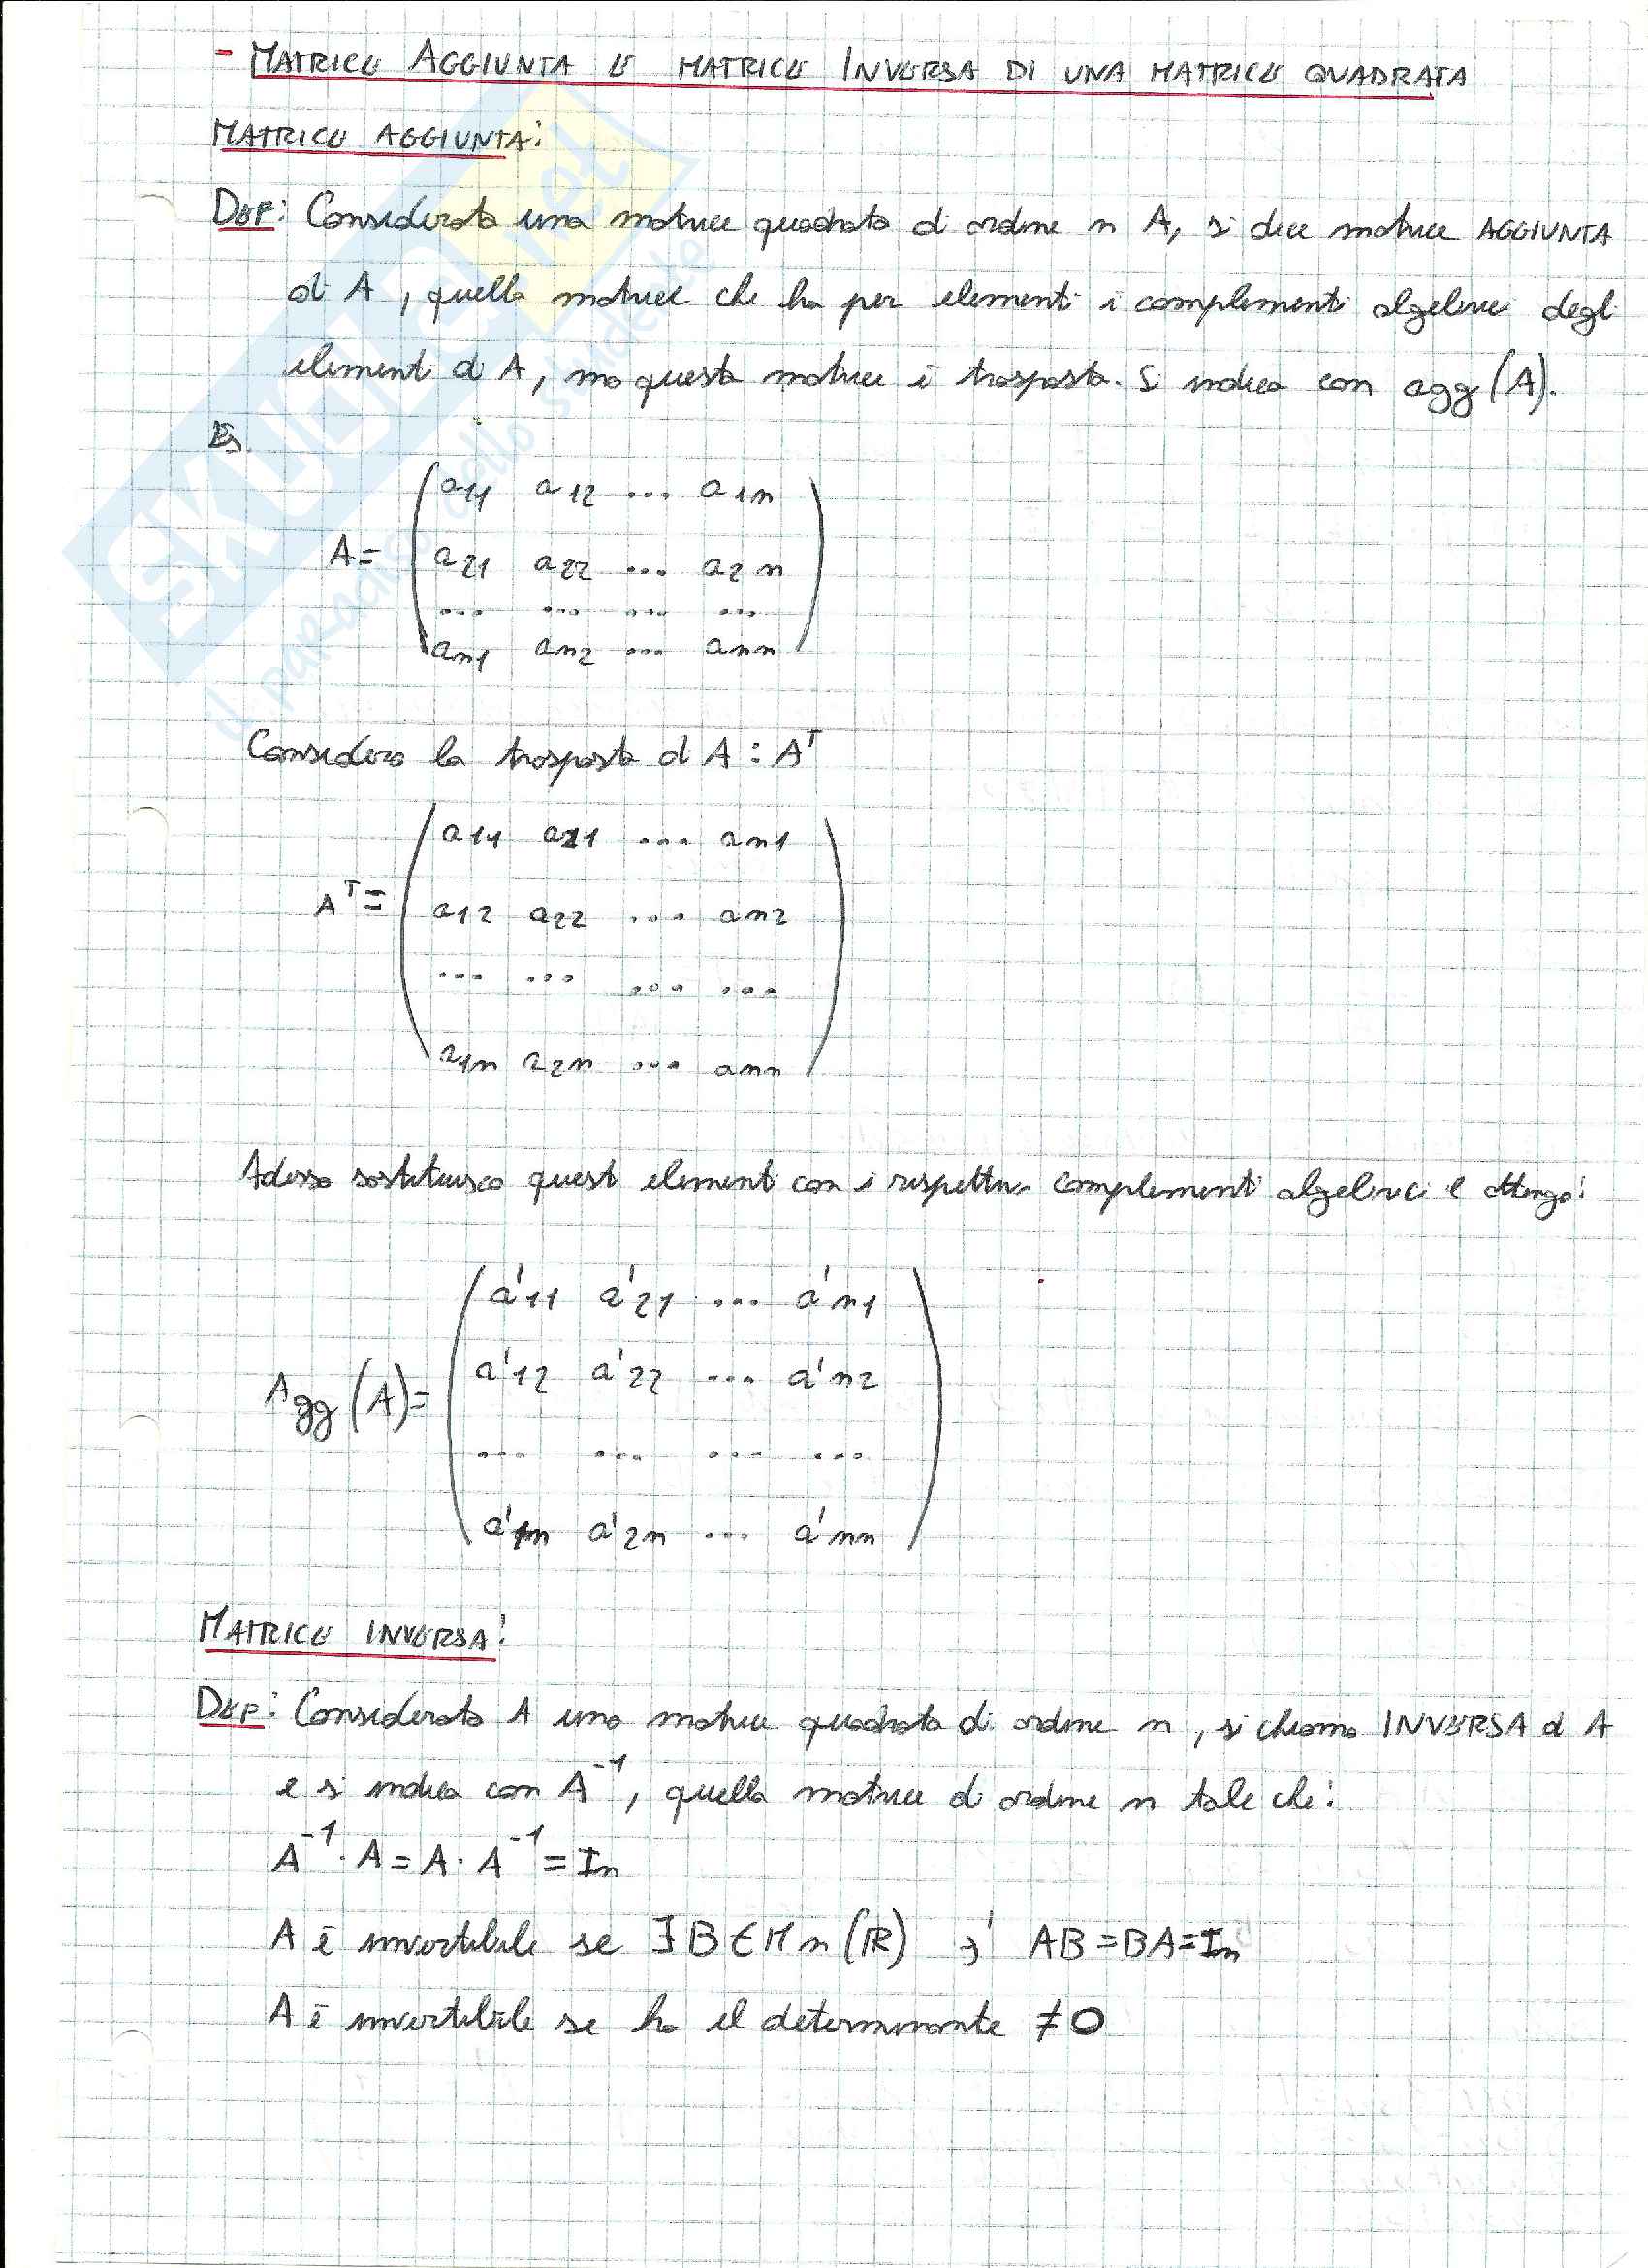 - MATRICE AGGIUNTA E MATRICE INVERSA DI UNA MATRICE QUADRATA
MATRICE AGGIUNTA:
DEF: Considerata una matrice quadrata di ordine n A, si dice matrice AGGIUNTA
di A, quella matrice che ha per elementi i complementi algebrici degli
elementi di A, ma questa matrice è trasposta. Si indica con agg(A).
Es.
a11 a12 ... a1n
A= a21 a22 ... a2n
... ... ... ...
an1 an2 ... ann
Considero la trasposta di A: A^T
a11 a21 ... an1
A^T= a12 a22 ... an2
... ... ... ...
a1n a2n ... ann
Adesso sostituisco questi elementi con i rispettivi complementi algebrici e ottengo:
a'11 a'21 ... a'n1
Agg(A)= a'12 a'22 ... a'n2
... ... ... ...
a'1n a'2n ... a'nn
MATRICE INVERSA:
DEF: Considerata A una matrice quadrata di ordine n, si chiama INVERSA di A
e si indica con A^-1, quella matrice di ordine n tale che:
A^-1 · A = A · A^-1 = In
A è invertibile se ∃ B ∈ Mn(R) ∋' AB = BA = In
A è invertibile se ha il determinante ≠ 0
SKUOLA.net
il paradiso dello studente